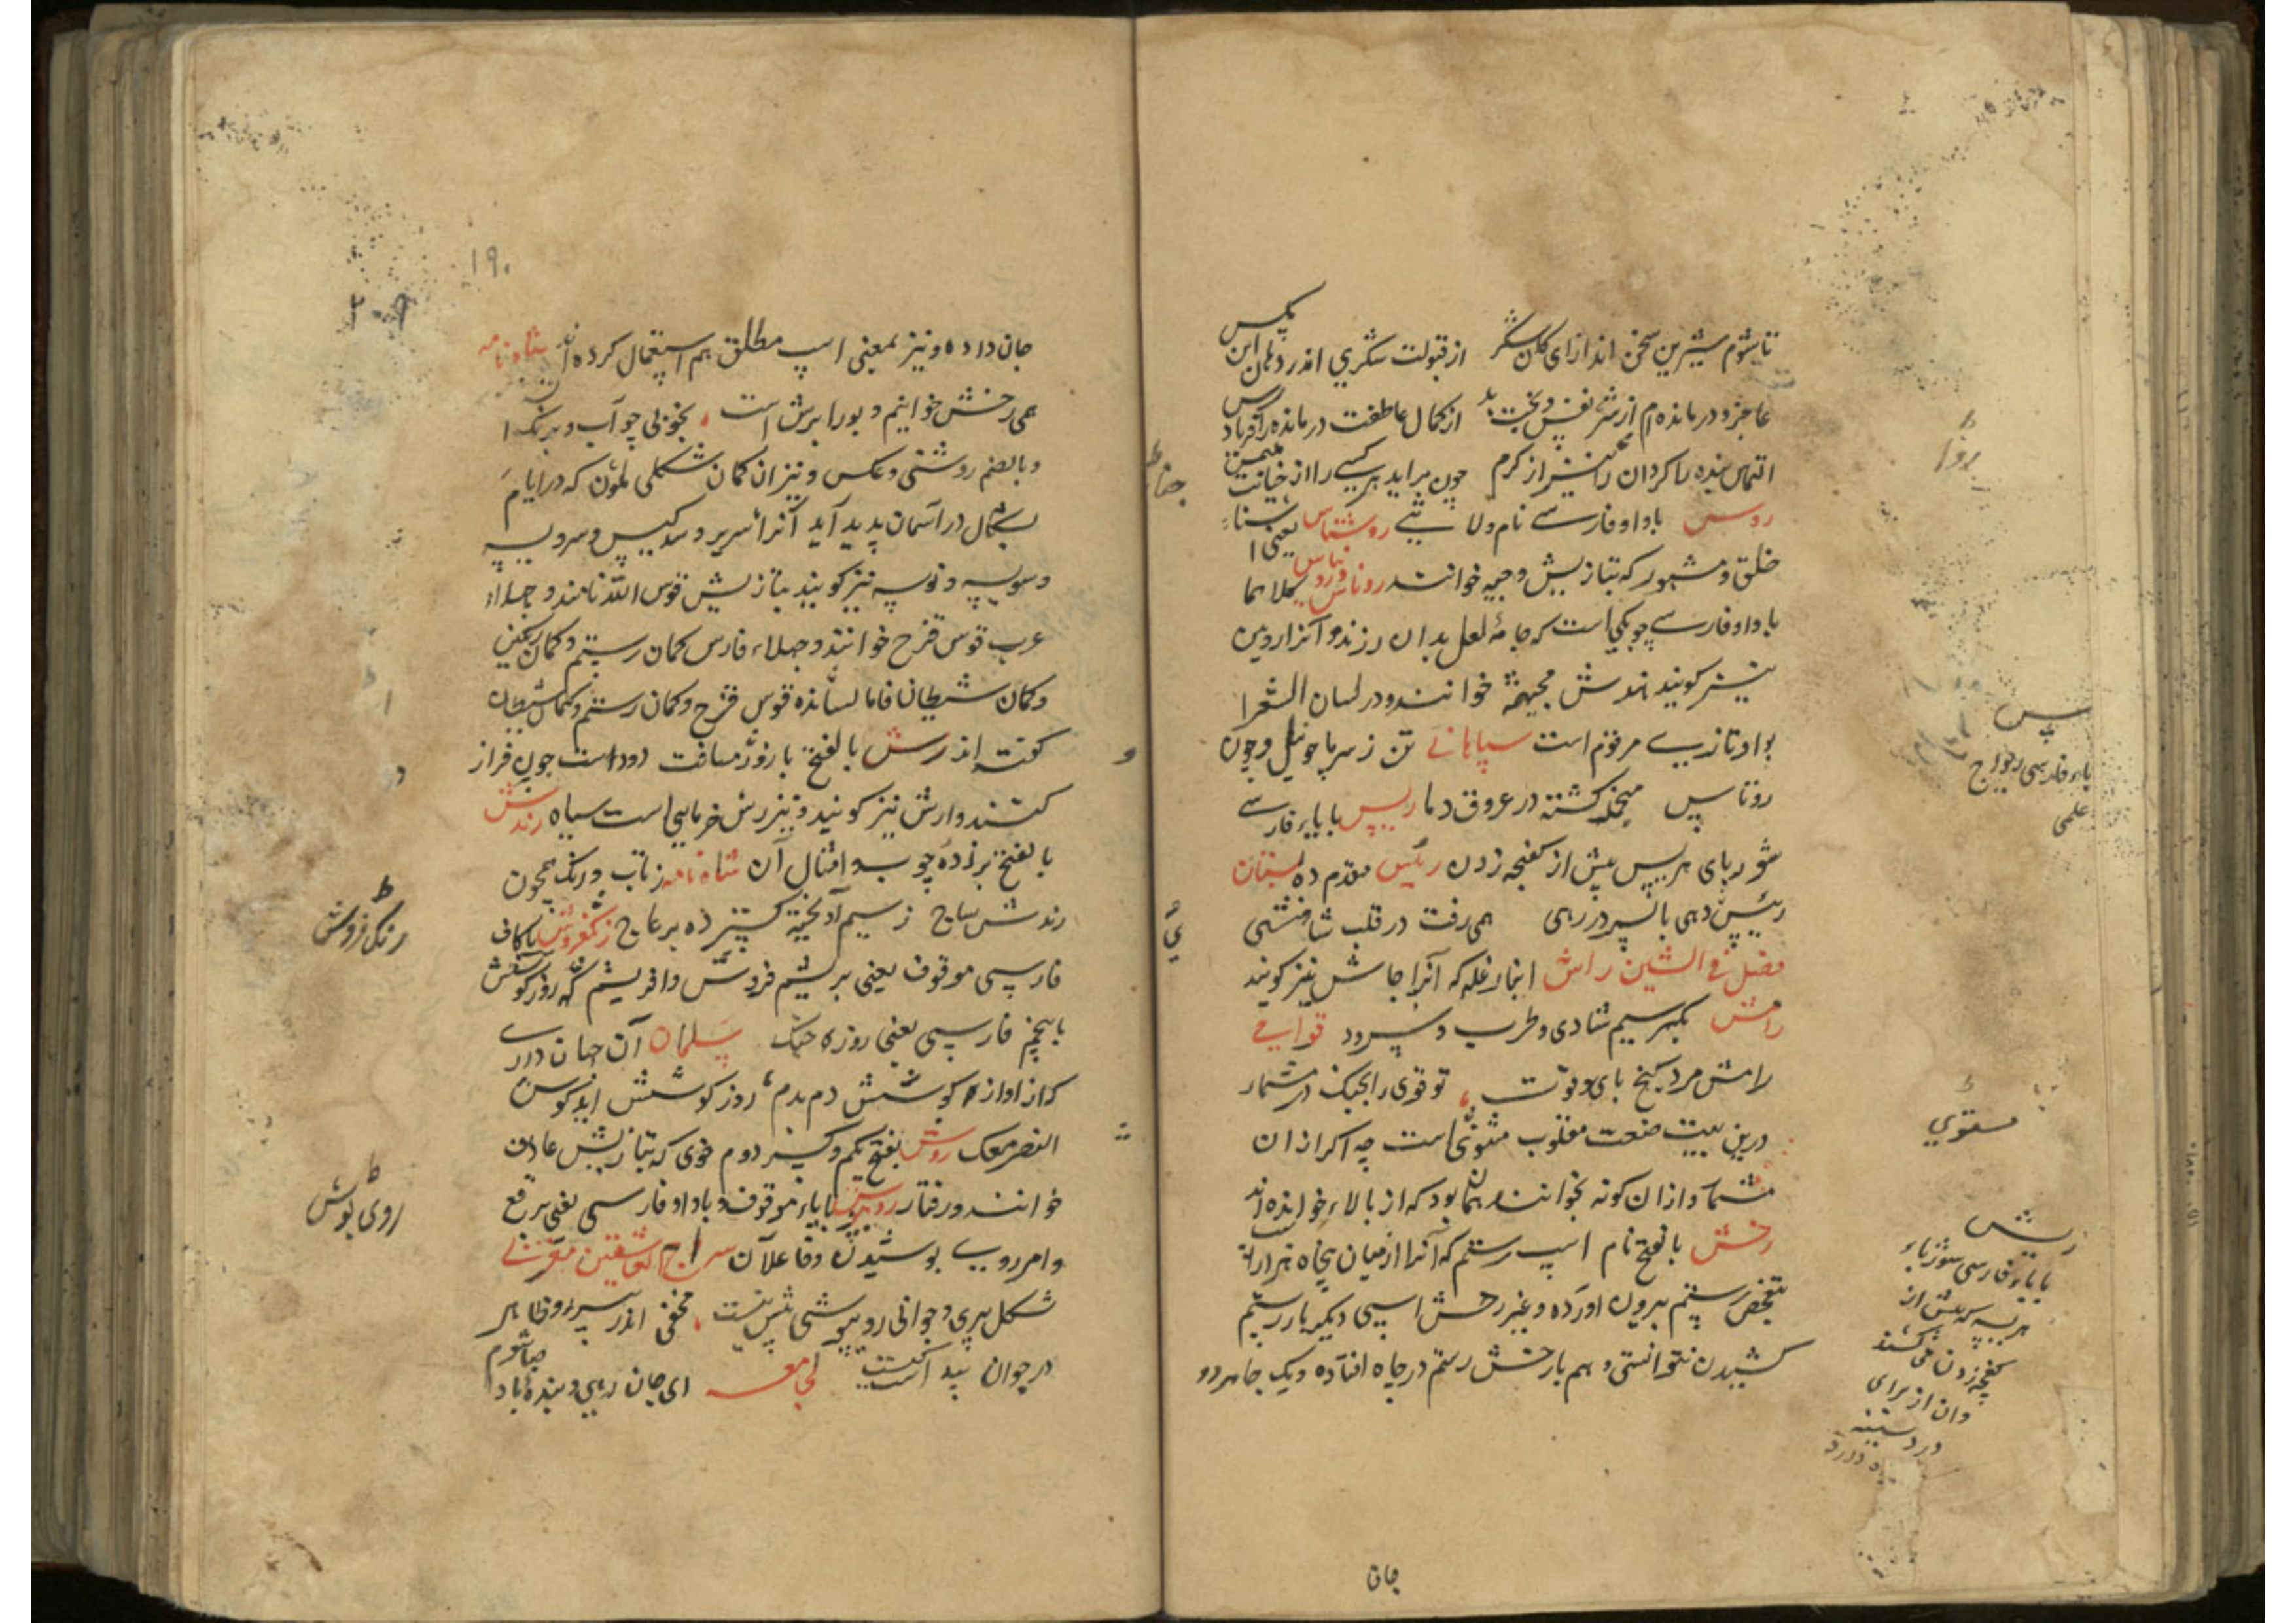 تا شوم شیرین سخن اندازای کان شکر از قبولت شکری اندر دهان این بیکس
عاجز و درمانده‌ام از شر نفس و بخت بد از کمال عاطفت درمانده را فریادرس
التماس بنده را کردان از کرم چون براید هر کسی را از
روس باواو فارسی نام ولایتی روشناس یعنی اشناء
خلق و مشهور که بتازیش وجیه خوانند روناس کلاهما
باواو فارسی چوبکی است که جامهٔ لعل بدان رزند و آنرا روین
نیز کویند هندش مجیهٹه خوانند و در لسان الشعرا
بواو تازی مرقوم است سپاهانی تن ز سرما چو نیل و چون
روناس کشته در عروق دما ریپس با باء فارسی
شوربای هریس پیش از کفجه زدن رئیس مقدم ده بستان
رئیس دهی با پسر در رهی همی رفت در قلب شاهنشهی
فصل فی الشین راش انبار غله که آنرا جاش نیز کویند
رامش بکسر سیم شادی و طرب و سرود قوافی
رامش مرد کنج بای و قوت تو قوی را بجنک در شمار
درین بیت صنعت مقلوب مستوی است چه اکر ازان
شمار و ازان کونه بخوانند همان بود که از بالاء خوانده اند
رخش بالفتح نام اسپ رستم که آنرا از میان پنجاه هزار
بتفحص رستم بیرون اورده و غیر رخش اسپی دیکر بار رستم
کشیدن نتوانستی و هم با رخش رستم در چاه افتاده و یک جا هر دو
جان
پس
باء فارسی رواج
علمی
مستوی
ریش
با باء فارسی شورباء
هریسه که پیش از
کفچه زدن می کشند
وان از برای
درد سینه
۱۹۰
جان داده و نیز بمعنی اسپ مطلق هم استعمال کرده اند شاه نامه
همی رخش خوانیم و بور ابرش است بخوبی چو آب و برنک ا
وبالضم روشنی و عکس و نیز ان کمان شکلی ملون که در ایام
بشکال در آسمان پدید آید آنرا سریر و سدکیس و سرویسه
و سویسه و نوسه نیز کویند بتازیش قوس الله نامند و جهلاء
عرب قوس قزح خوانند و جهلاء فارس کمان رستم و کمان رنکین
و کمان شیطان فاما قوس قزح و کمان رستم و کمان شیطان
کفته اند رش بالفتح باز و مسافت دو دست چون فراز
کنند و ارش نیز کویند و نیز رش خرمایی است سیاه رندش
بالفتح برادهٔ چوب و امثال آن شاه نامه ز تاب و رنک همچون
رندش ساج ز سیم آویخته کسترده بر عاج رنکفروش باکاف
فارسی موقوف یعنی بریشم فروش و افریشم کر روز کوشش
با جیم فارسی یعنی روزه جنک سلمان آن جهان داری
که از اوازه کوشش دم بدم روز کوشش اید کوس
النصر معک روش بفتح یکم و کسر دوم خوی که بتازیش عادت
خوانند و رفتار روی پوش با یاء موقوف و باواو فارسی یعنی برقع
و امر روی پوشیدن و فاعل آن سراج العاشقین مغربی
شکل پیری و جوانی روپوشی بیش نیست مخفی اندر پیر و ظاهر
در جوان پیداست کیست لجامعه ای جان رهی و بنده باد
رنک فروش
روی پوش